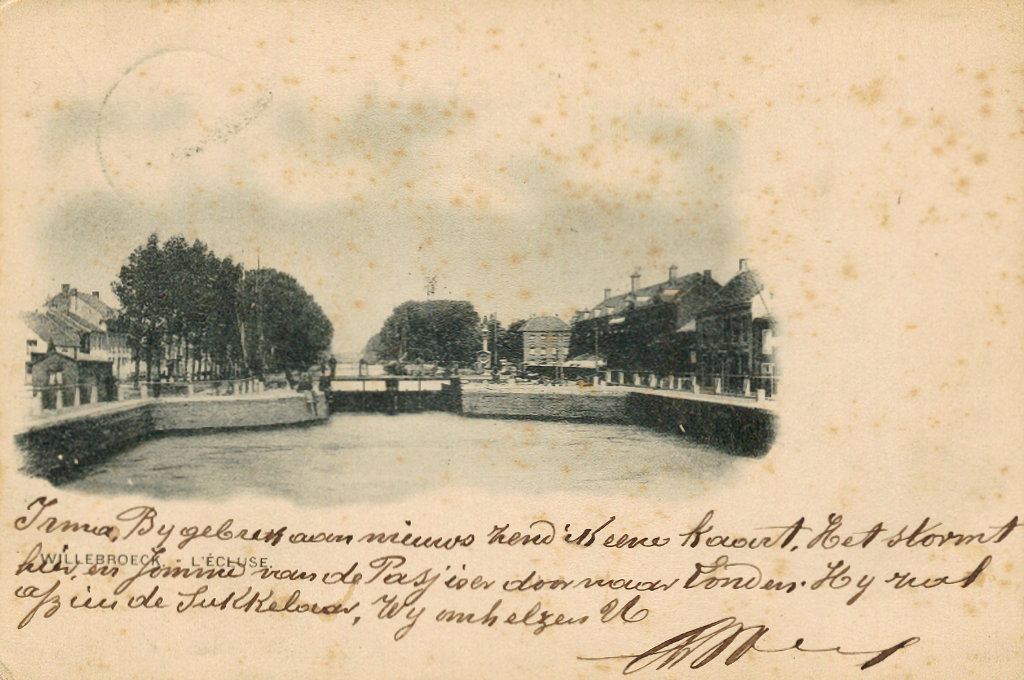 Irma, By gebrek aan nieuws zend ik eene kaart. Het stormt
WILLEBROECK. L'ÉCLUSE.
hier, en Jommé van de Pasj ier door naar Londen. Hy zal
afzien de Sukkelaar, Wy omhelzen U